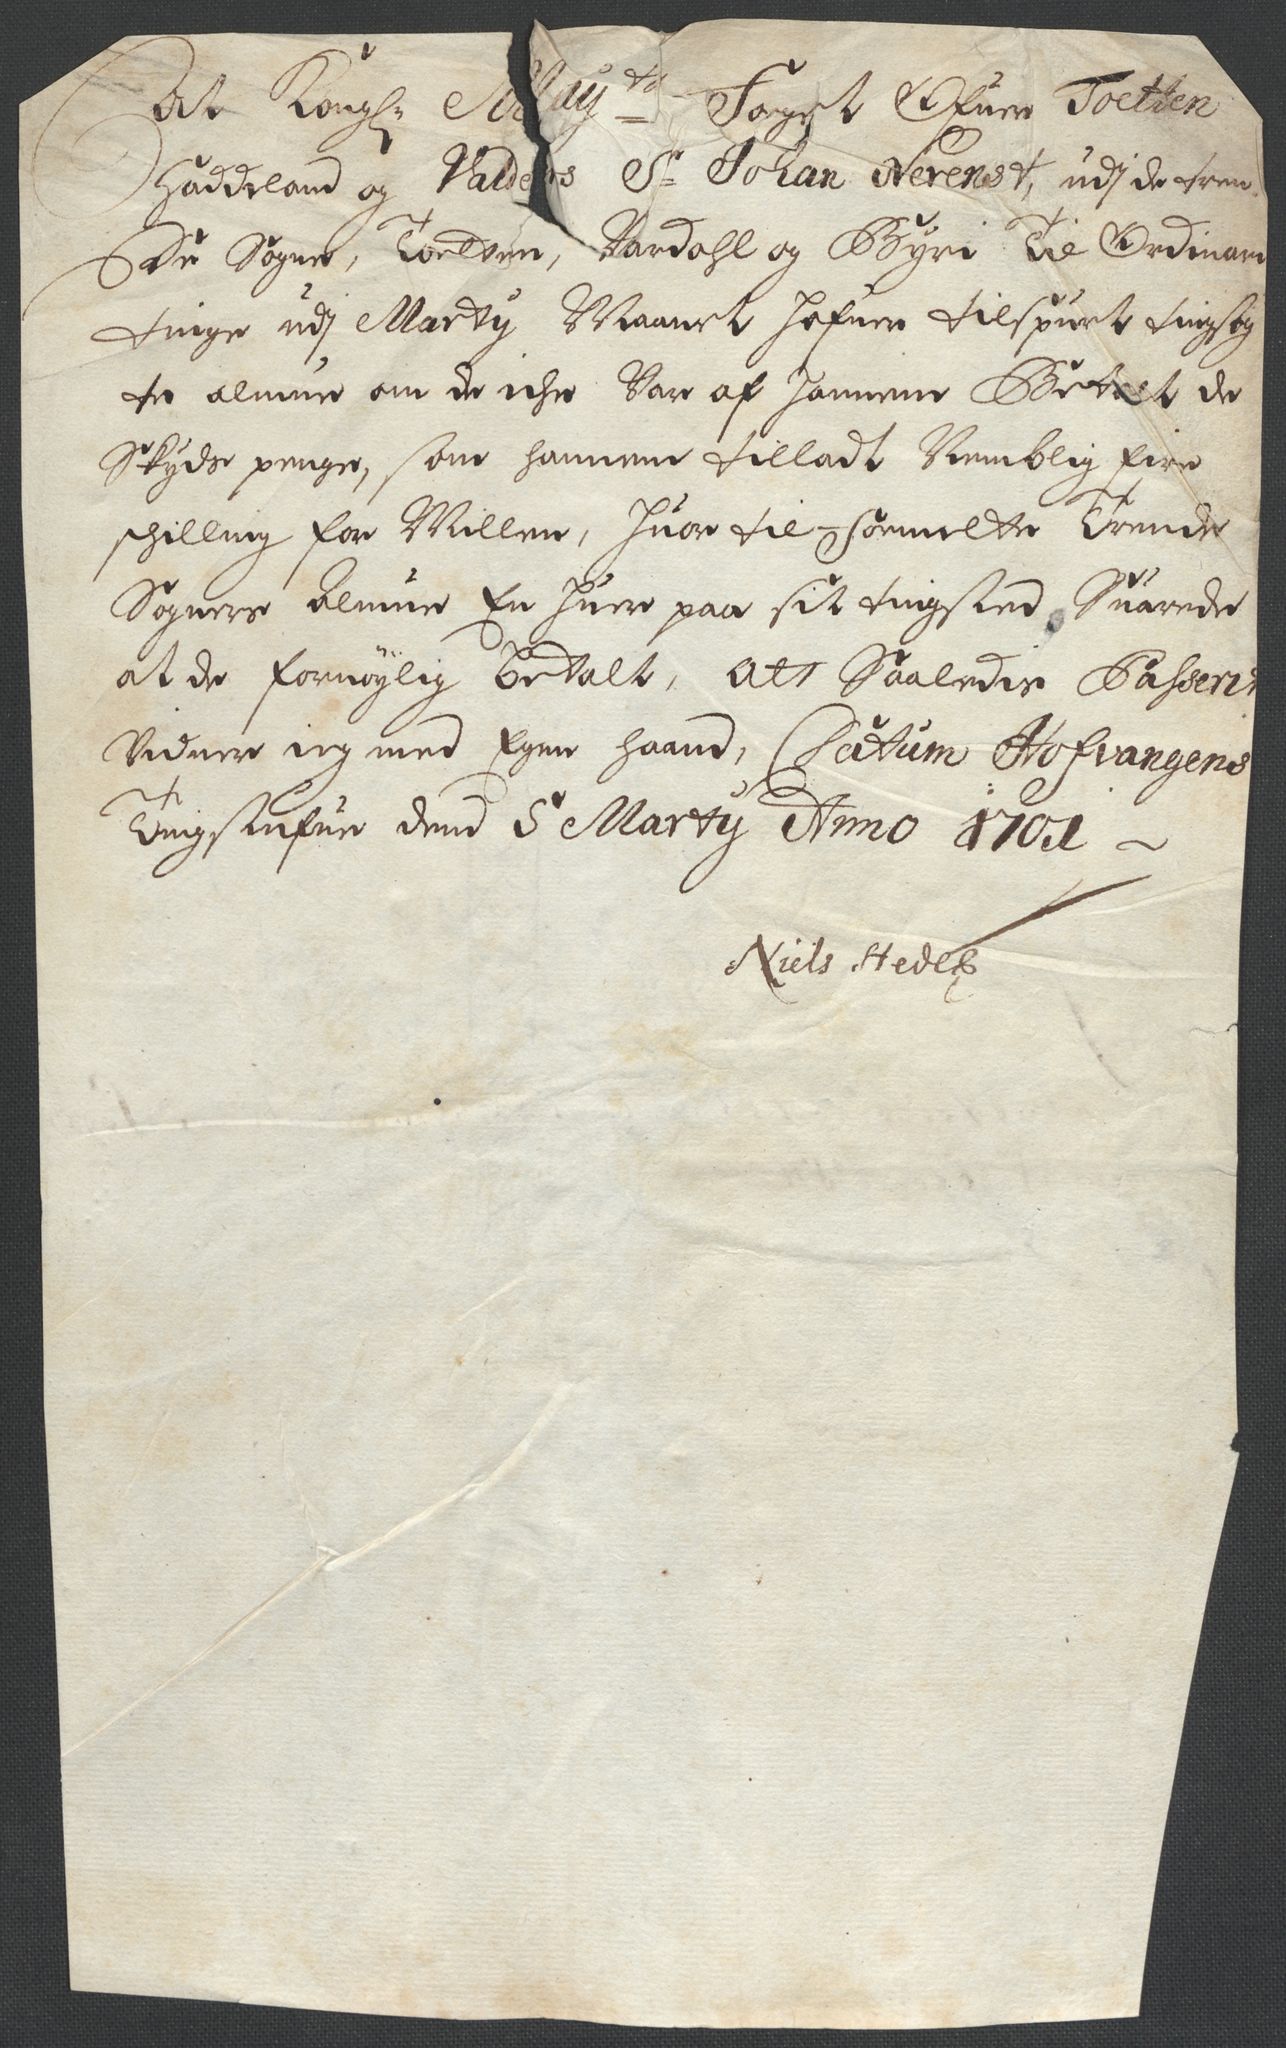 At Kongl: May:ts Foget Ofuer Toetten
Haddeland og Valders Sr Johan Nerenst, udj de tren
de Sogner, Toetten, Vardahl og Byri Til Ordinari
tinge udj Marty Maanet hafuer tilspurt tingsøg
te almue om de iche Var af hannem Betalt de
Skyds penge, som hannem tilladt Nemblig fire
schilling for Millen, huor til formelte Trende
Sogners Almue En huer paa sit tingsted Suarede
at de fornøylig Betalt, Att Saaledis Passerit
Vidner ieg med Egen haand, Datum Hofvangens
Tingstufue dend 5 Marty Anno 1701
Niels